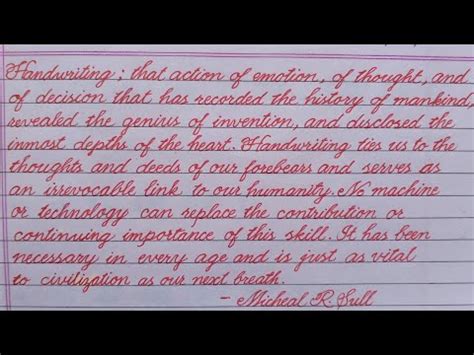 Handwriting; that action of emotion, of thought, and
of decision that has recorded the history of mankind
revealed the genius of invention, and disclosed the
inmost depths of the heart. Handwriting ties us to the
thoughts and deeds of our forebears and serves as
an irrevocable link to our humanity. No machine
or technology can replace the contribution or
continuing importance of this skill. It has been
necessary in every age and is just as vital
to civilization as our next breath.
- Micheal R. Sull